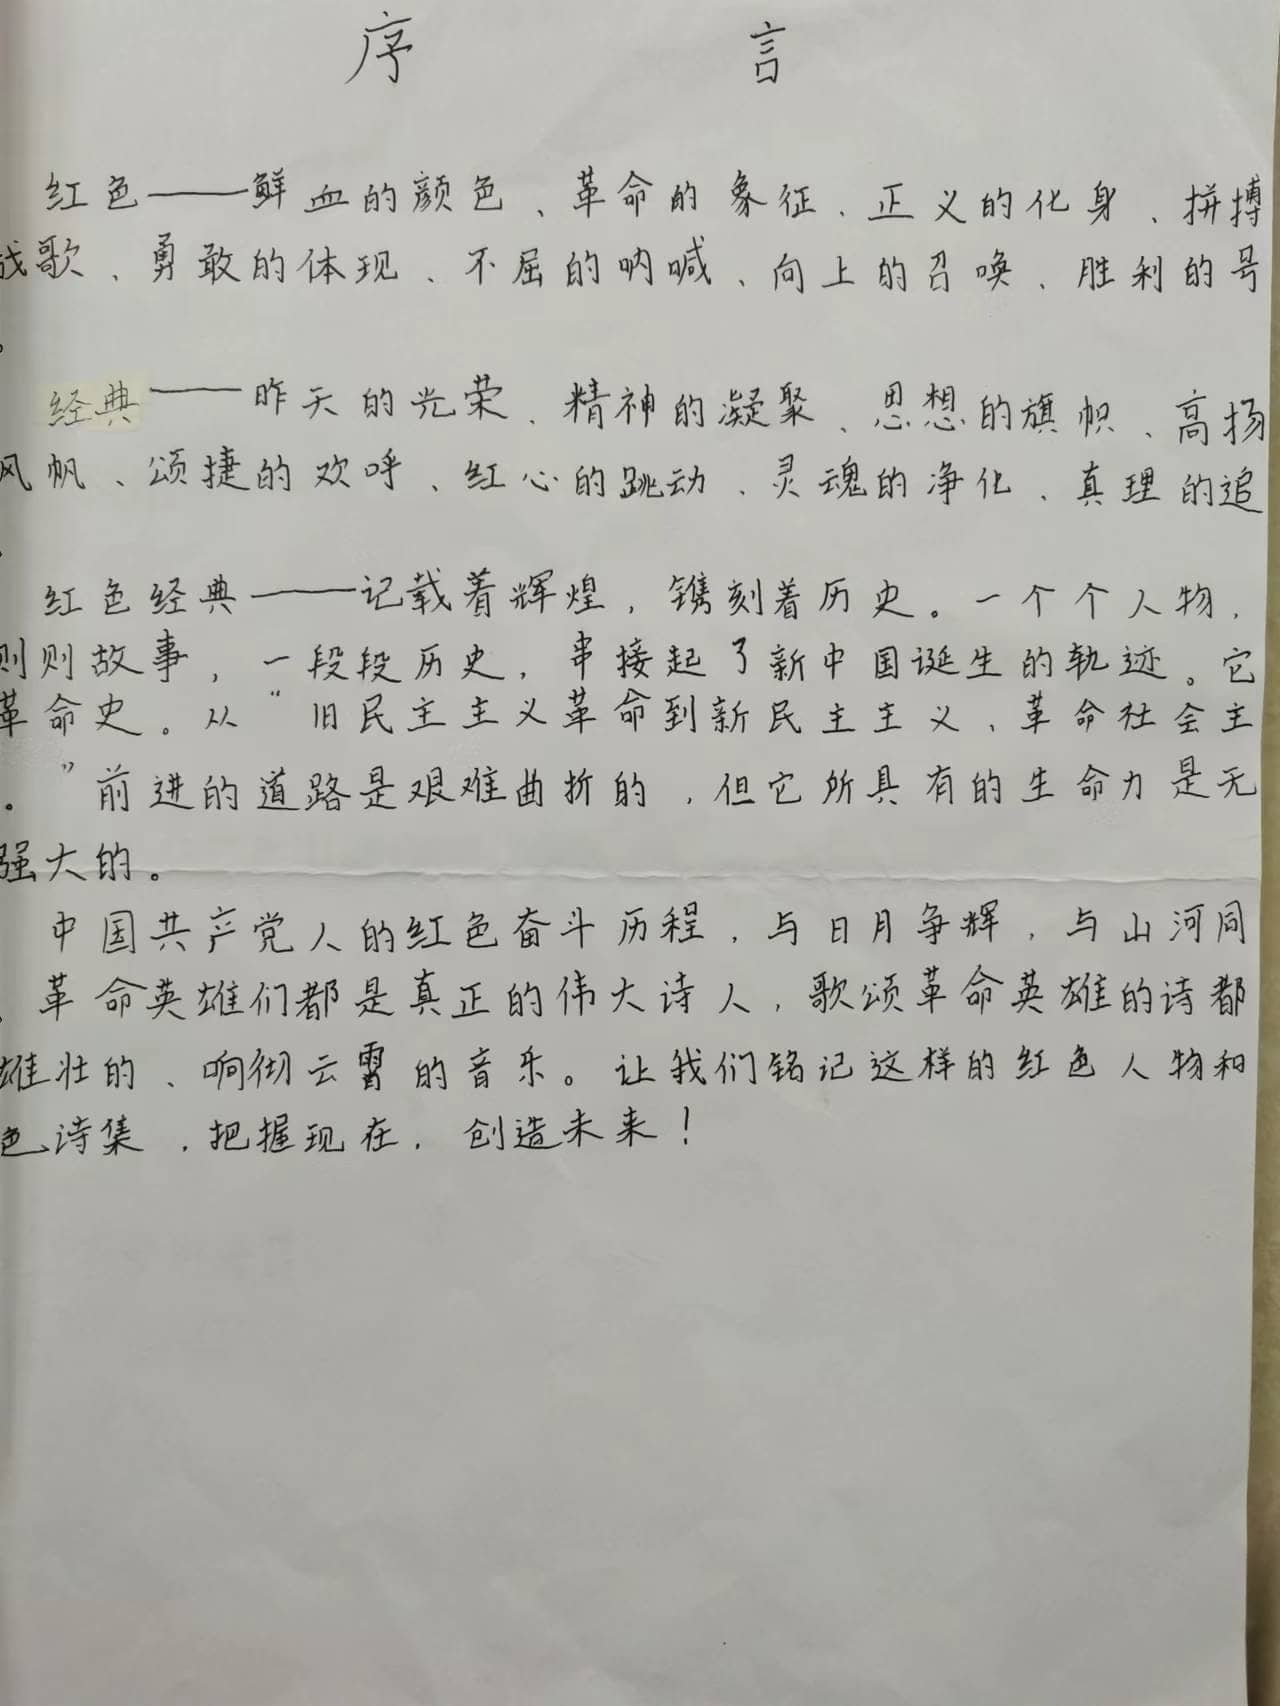 序 言
红色——鲜血的颜色、革命的象征、正义的化身、拼搏
战歌、勇敢的体现、不屈的呐喊、向上的召唤、胜利的号
。
经典——昨天的光荣、精神的凝聚、思想的旗帜、高扬
风帆、颂捷的欢呼、红心的跳动、灵魂的净化、真理的追
红色经典——记载着辉煌，镌刻着历史。一个个人物，
则则故事，一段段历史，串接起了新中国诞生的轨迹。它
革命史。从“旧民主主义革命到新民主主义、革命社会主
。”前进的道路是艰难曲折的，但它所具有的生命力是无
强大的。
中国共产党人的红色奋斗历程，与日月争辉，与山河同
革命英雄们都是真正的伟大诗人，歌颂革命英雄的诗都
雄壮的、响彻云霄的音乐。让我们铭记这样的红色人物和
色诗集，把握现在，创造未来！